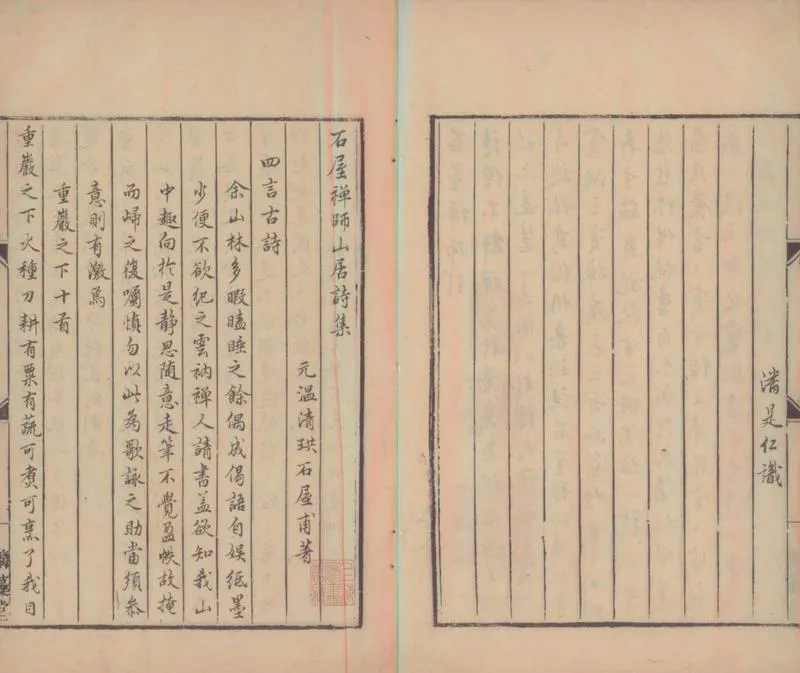 潘是仁識
石屋禅師山居詩集
元温清珙石屋甫著
四言古詩
余山林多暇瞌睡之餘偶成偈語自娱紙墨
少便不欲纪之雲衲禅人請書盖欲知我山
中趣向於是静思随意走筆不覺盈帙故掩
而歸之復囑慎勿以此為歌詠之助當須叅
意則有激焉
重巖之下十首
重巖之下火種刀耕有粟有蔬可煑可烹了我目